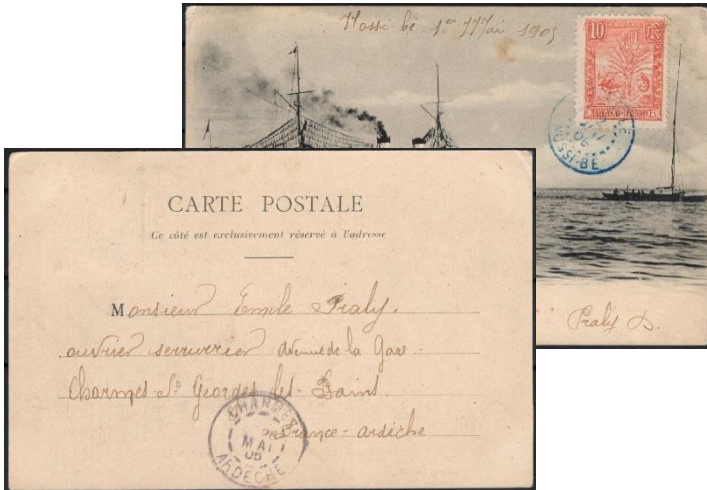 Nossi bé 1er Mai 1905
10
MADAGASCAR ET DÉPENDANCES
NOSSI-BÉ
Praly D.
CARTE POSTALE
Ce côté est exclusivement réservé à l'adresse
Monsieur Emile Praly.
ouvrier serrurier Avenue de la Gare -
Charmes St Georges les Bains.
France - ardèche
CHARMES
MAI
05
ARDECHE